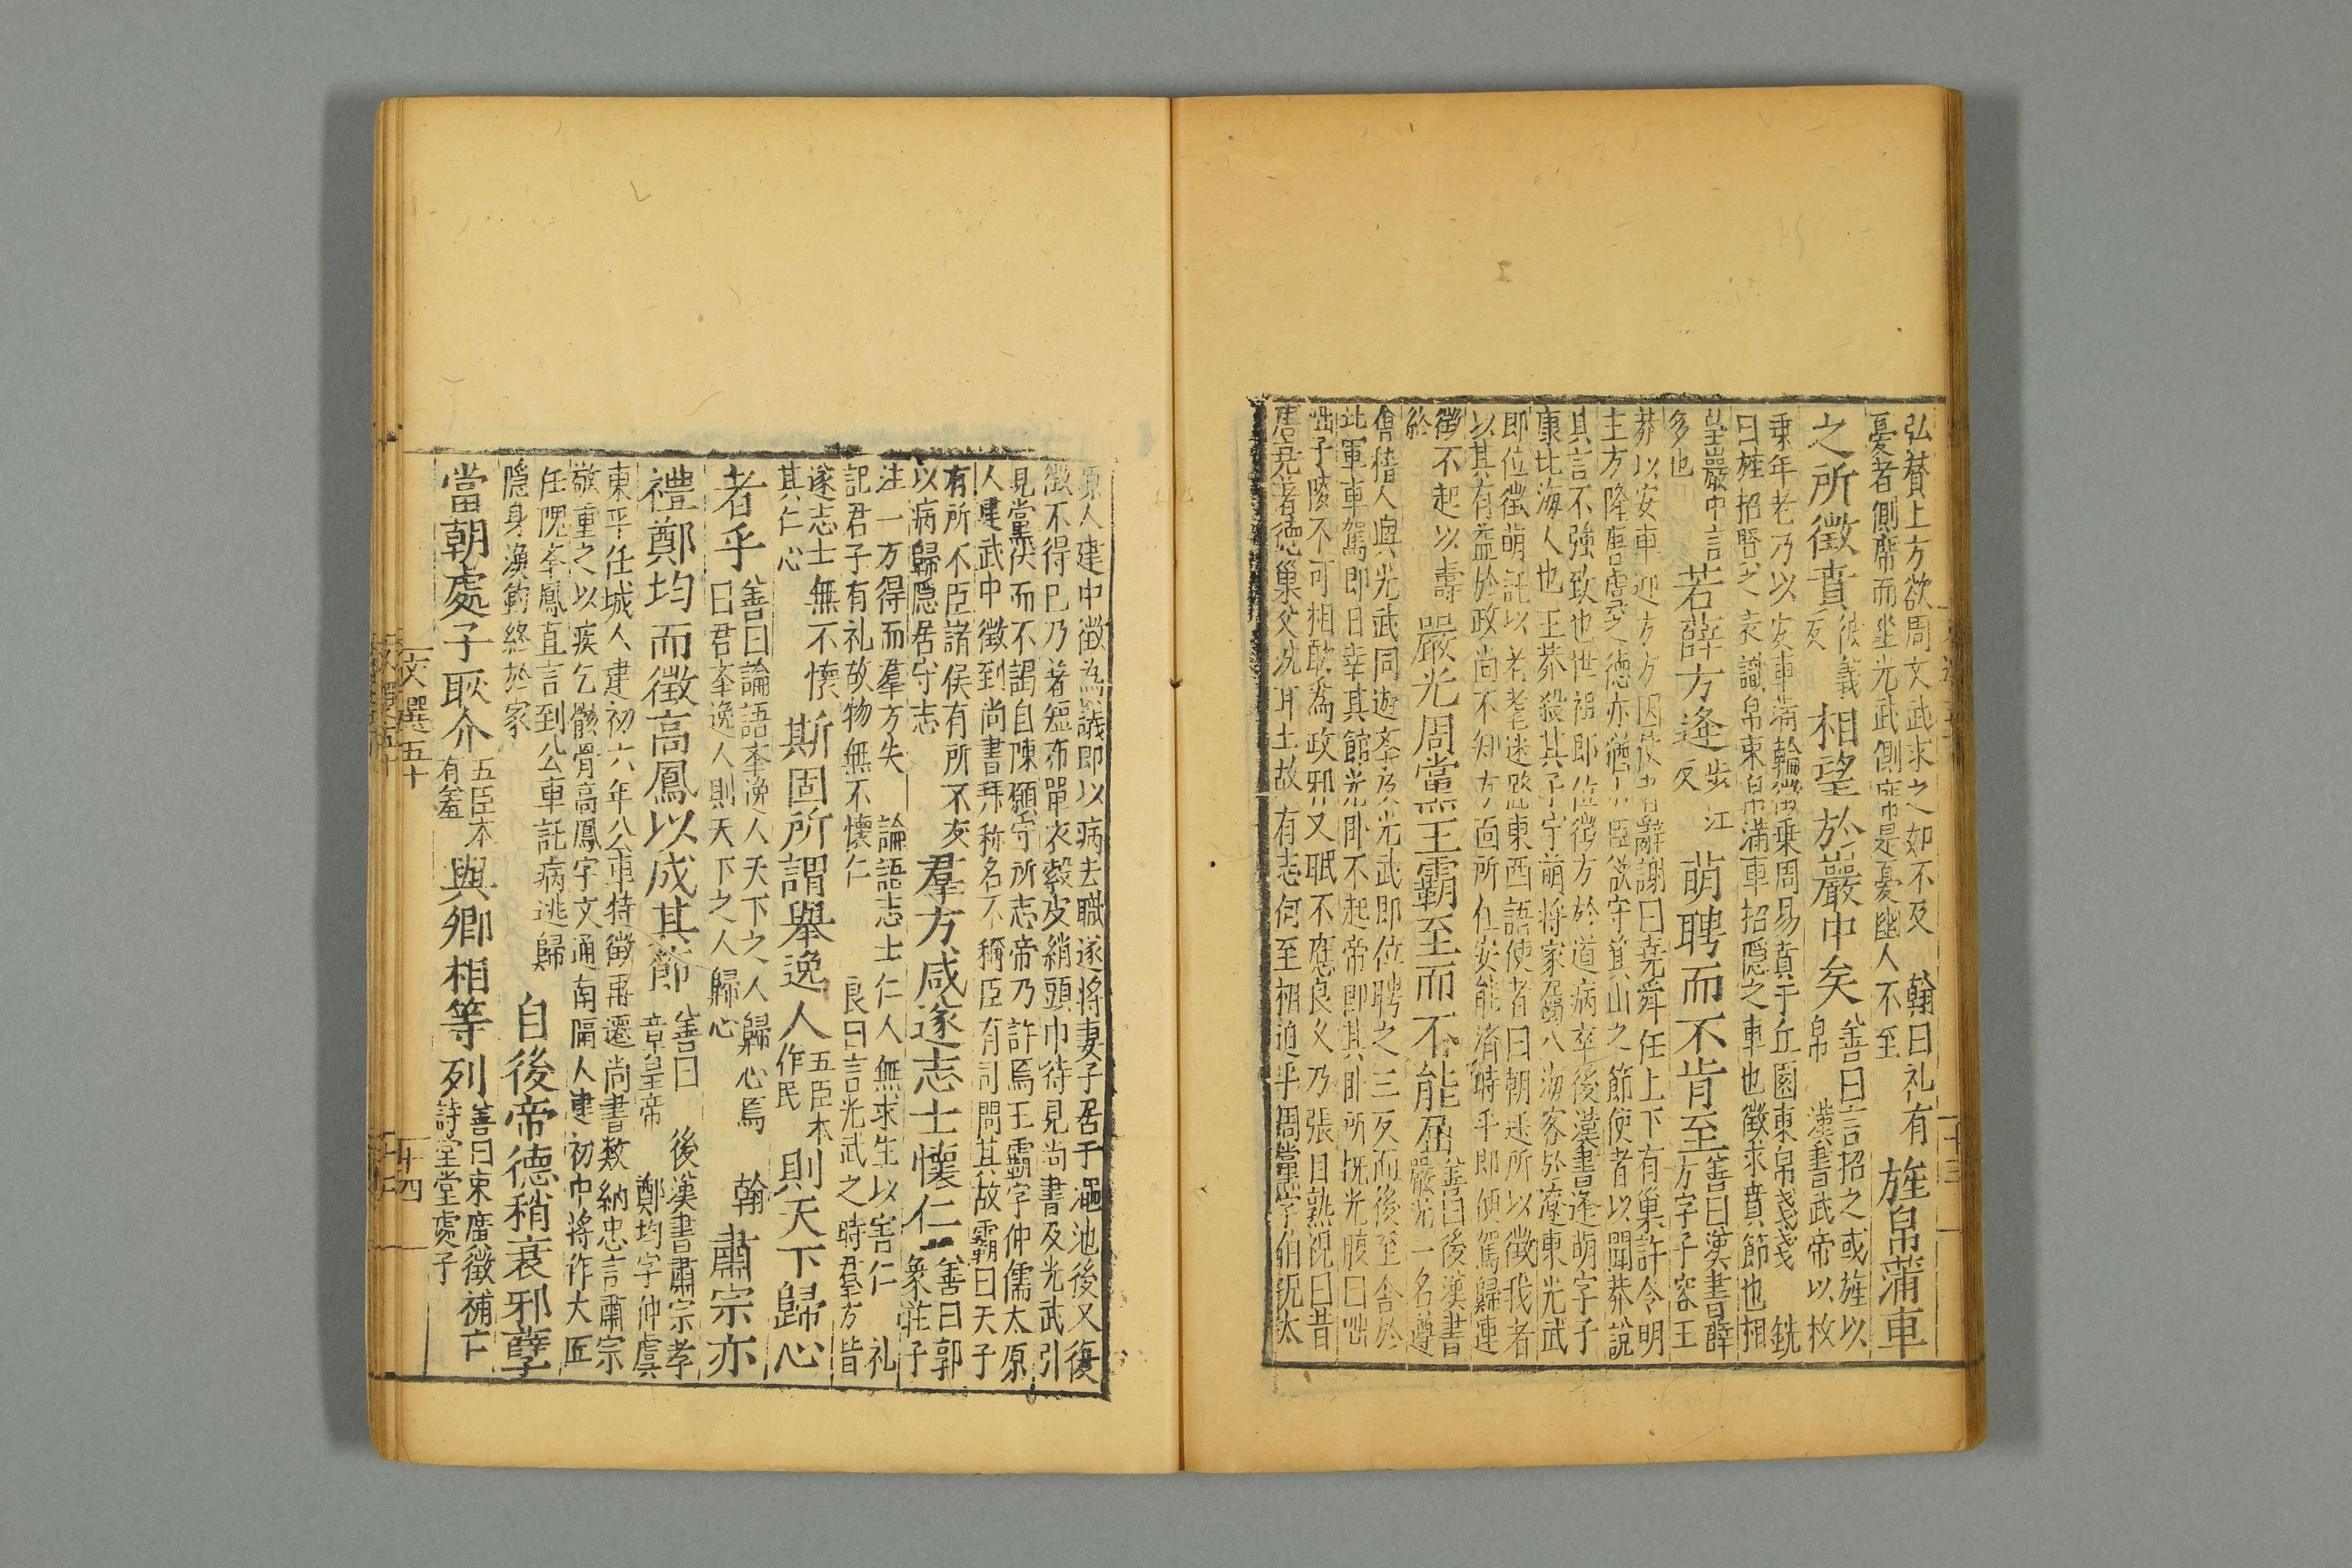 弘賛上方欲周文武求之如不及　翰曰礼有
憂者側席而坐光武側席是憂幽人不至
旌帛蒲車
之所徵賁
彼義
反
相望於巖中矣
善曰言招之或旌以
帛　漢書武帝以枚
乗年老乃以安車蒲輪徵乗周易賁于丘園東帛戔戔　銑
曰旌招賢之表識帛束帛蒲車招隠之車也徵求賁節也相
望巖中言
多也
若薛方逢
步江
反
萌聘而不肯至
善曰漢書曰薛
方字子容王
莽以安車迎方方因使者辭謝曰堯舜任上下有巢許今明
主方隆唐虞之德亦猶小臣欲守箕山之節使者以聞莽說
其言不強致也世祖即位徵方於道病卒後漢書逢萌字子
康北海人也王莽殺其子宇萌将家屬入海客於遼東光武
即位徵萌託以老耄迷路東西語使者曰朝廷所以徵我者
以其有益於政尚不知方面所在安能済時乎即便駕歸連
徵不起以壽
終
嚴光周黨王霸至而不能屈
善曰後漢書
嚴光一名遵
會稽人與光武同遊斈及光武即位聘之三反而後至舎於
北軍車駕即日幸其館光卧不起帝即其卧所撫光腹曰咄
咄子陵不可相助為政邪又眠不應良乆乃張目熟視曰昔
唐尭著德巢父洗耳士故有志何至相迫乎周黨字伯況太
原人建中徵為議即以病去職遂将妻子居于黽池後又復
徵不得已乃著短布單衣穀皮綃頭巾待見尚書及光武引
見黨伏而不謁自陳願守所志帝乃許焉王霸字仲儒太原
人建武中徵到尚書拜称名不稱臣有司問其故霸曰天子
有所不臣諸侯有所不友
以病歸隠居守志
羣方咸遂志士懐仁
善曰郭
象莊子
注一方得而羣方失　論語志士仁人無求生以害仁　礼
記君子有礼故物無不懐仁　良曰言光武之時羣方皆
遂志士無不懐
其仁心
斯固所謂舉逸人
五臣本
作民
則天下歸心
者乎
善曰論語斈逸人天下之人歸心焉　翰
曰君斈逸人則天下之人歸心
肅宗亦
禮鄭均而徵高鳳以成其節
善曰　後漢書肅宗孝
章皇帝　鄭均字仲虞
東平任城人建初六年公車特徵再遷尚書数納忠言肅宗
敬重之以疾乞骸骨高鳳字文通南陽人建初中将作大匠
任隗斈鳳直言到公車託病逃歸
隠身漁釣終於家
自後帝德稍衰邪孽
當朝處子耿介
五臣本
有羞
與卿相等列
善曰束廣徵補亡
詩堂堂處子
文選五十
十四